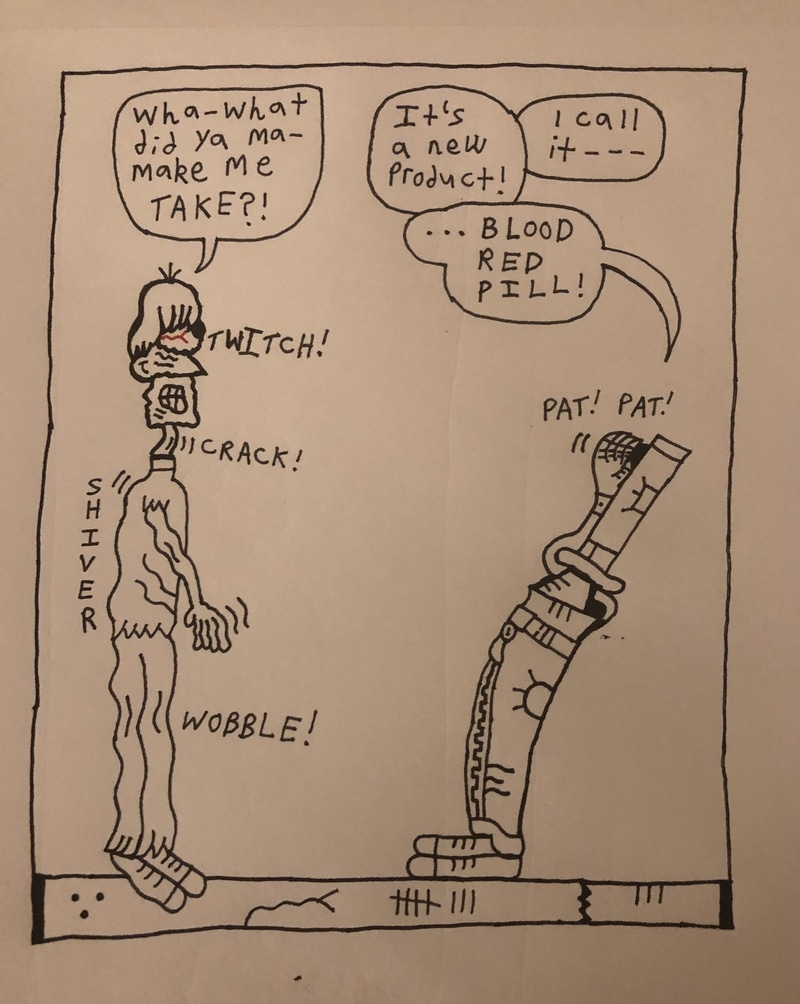 Wha-What
did ya ma-
make me
TAKE?!
It's
a new
Product!
I call
it ---
... BLOOD
RED
PILL!
TWITCH!
CRACK!
SHIVER
WOBBLE!
PAT! PAT!